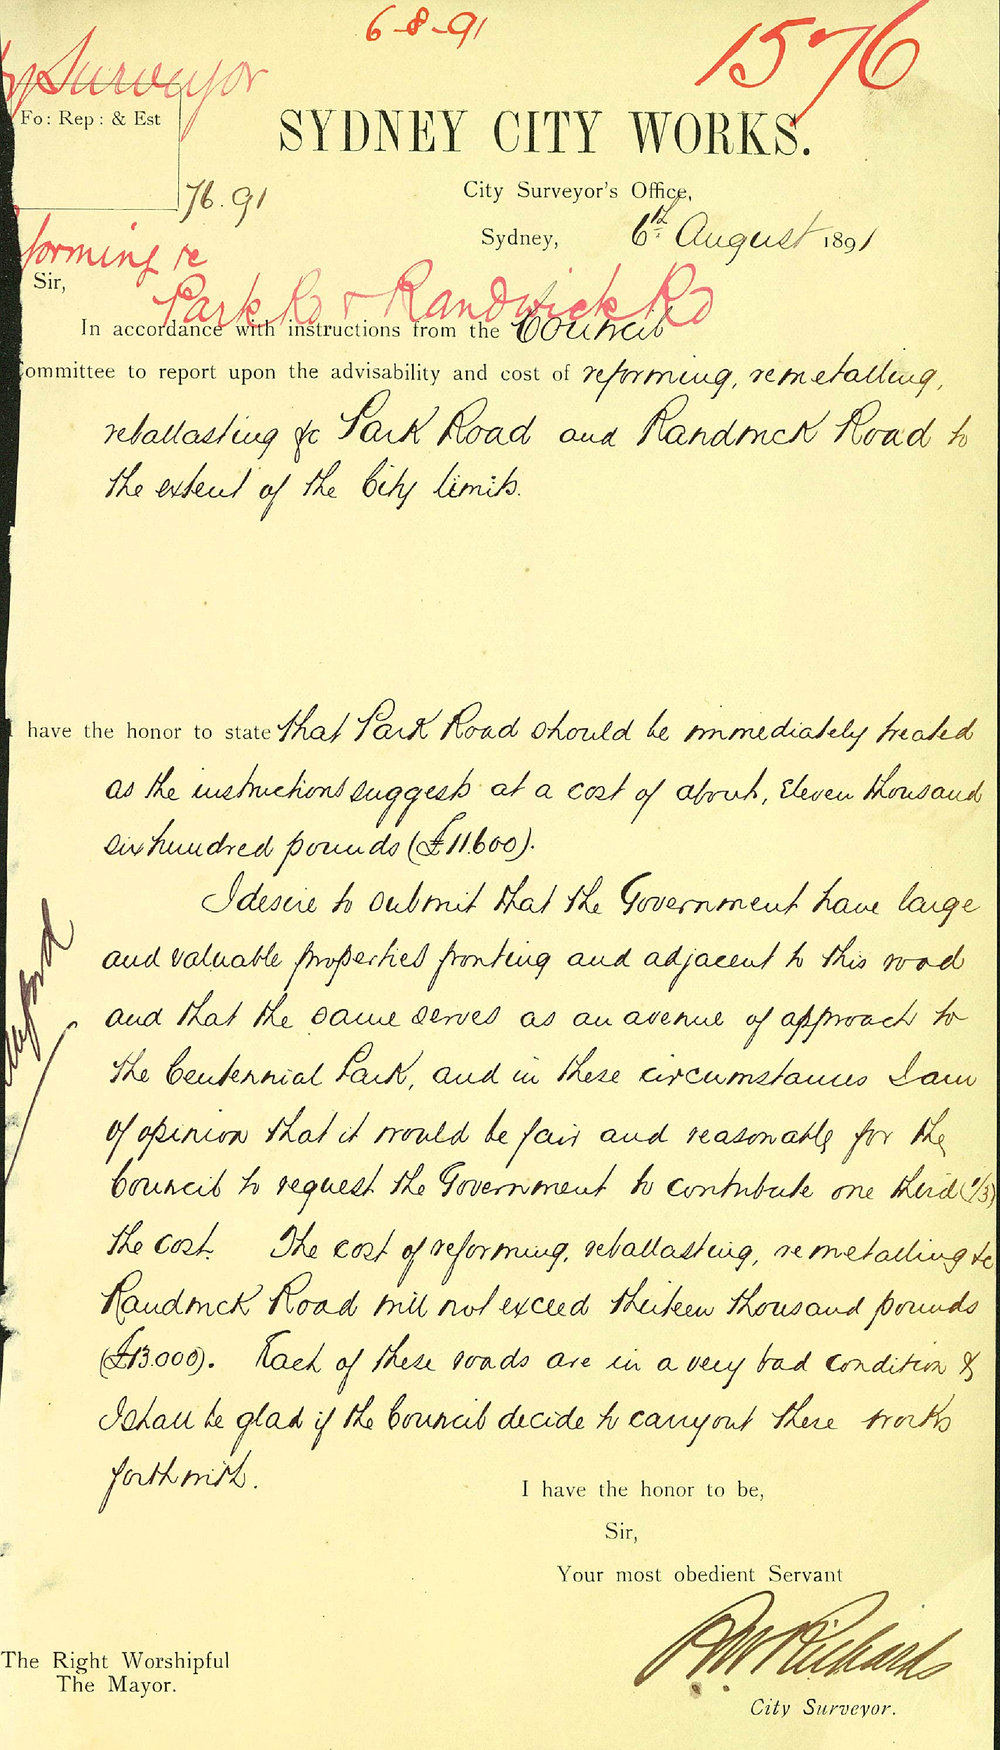 6-8-91
1576
Surveyor
Fo: Rep: & Est
SYDNEY CITY WORKS.
76.91
City Surveyor's Office,
Sydney, 6th August 1891
forming re
Sir,
Park Rd & Randwick Rd
In accordance with instructions from the Council
Committee to report upon the advisability and cost of reforming, remetalling,
reballasting &c Park Road and Randwick Road to
the extent of the City limits.
I have the honor to state that Park Road should be immediately treated
as the instructions suggests at a cost of about, Eleven thousand
six hundred pounds (£11.600).
I desire to submit that the Government have large
and valuable properties fronting and adjacent to this road
and that the same serves as an avenue of approach to
the Centennial Park, and in these circumstances I am
of opinion that it would be fair and reasonable for the
Council to request the Government to contribute one third (1/3)
the cost. The cost of reforming, reballasting, remetalling &c
Randwick Road will not exceed thirteen thousand pounds
(£13.000). Each of these roads are in a very bad condition &
I shall be glad if the Council decide to carry out these works
forthwith.
I have the honor to be,
Sir,
Your most obedient Servant
RW Richards
City Surveyor.
The Right Worshipful
The Mayor.